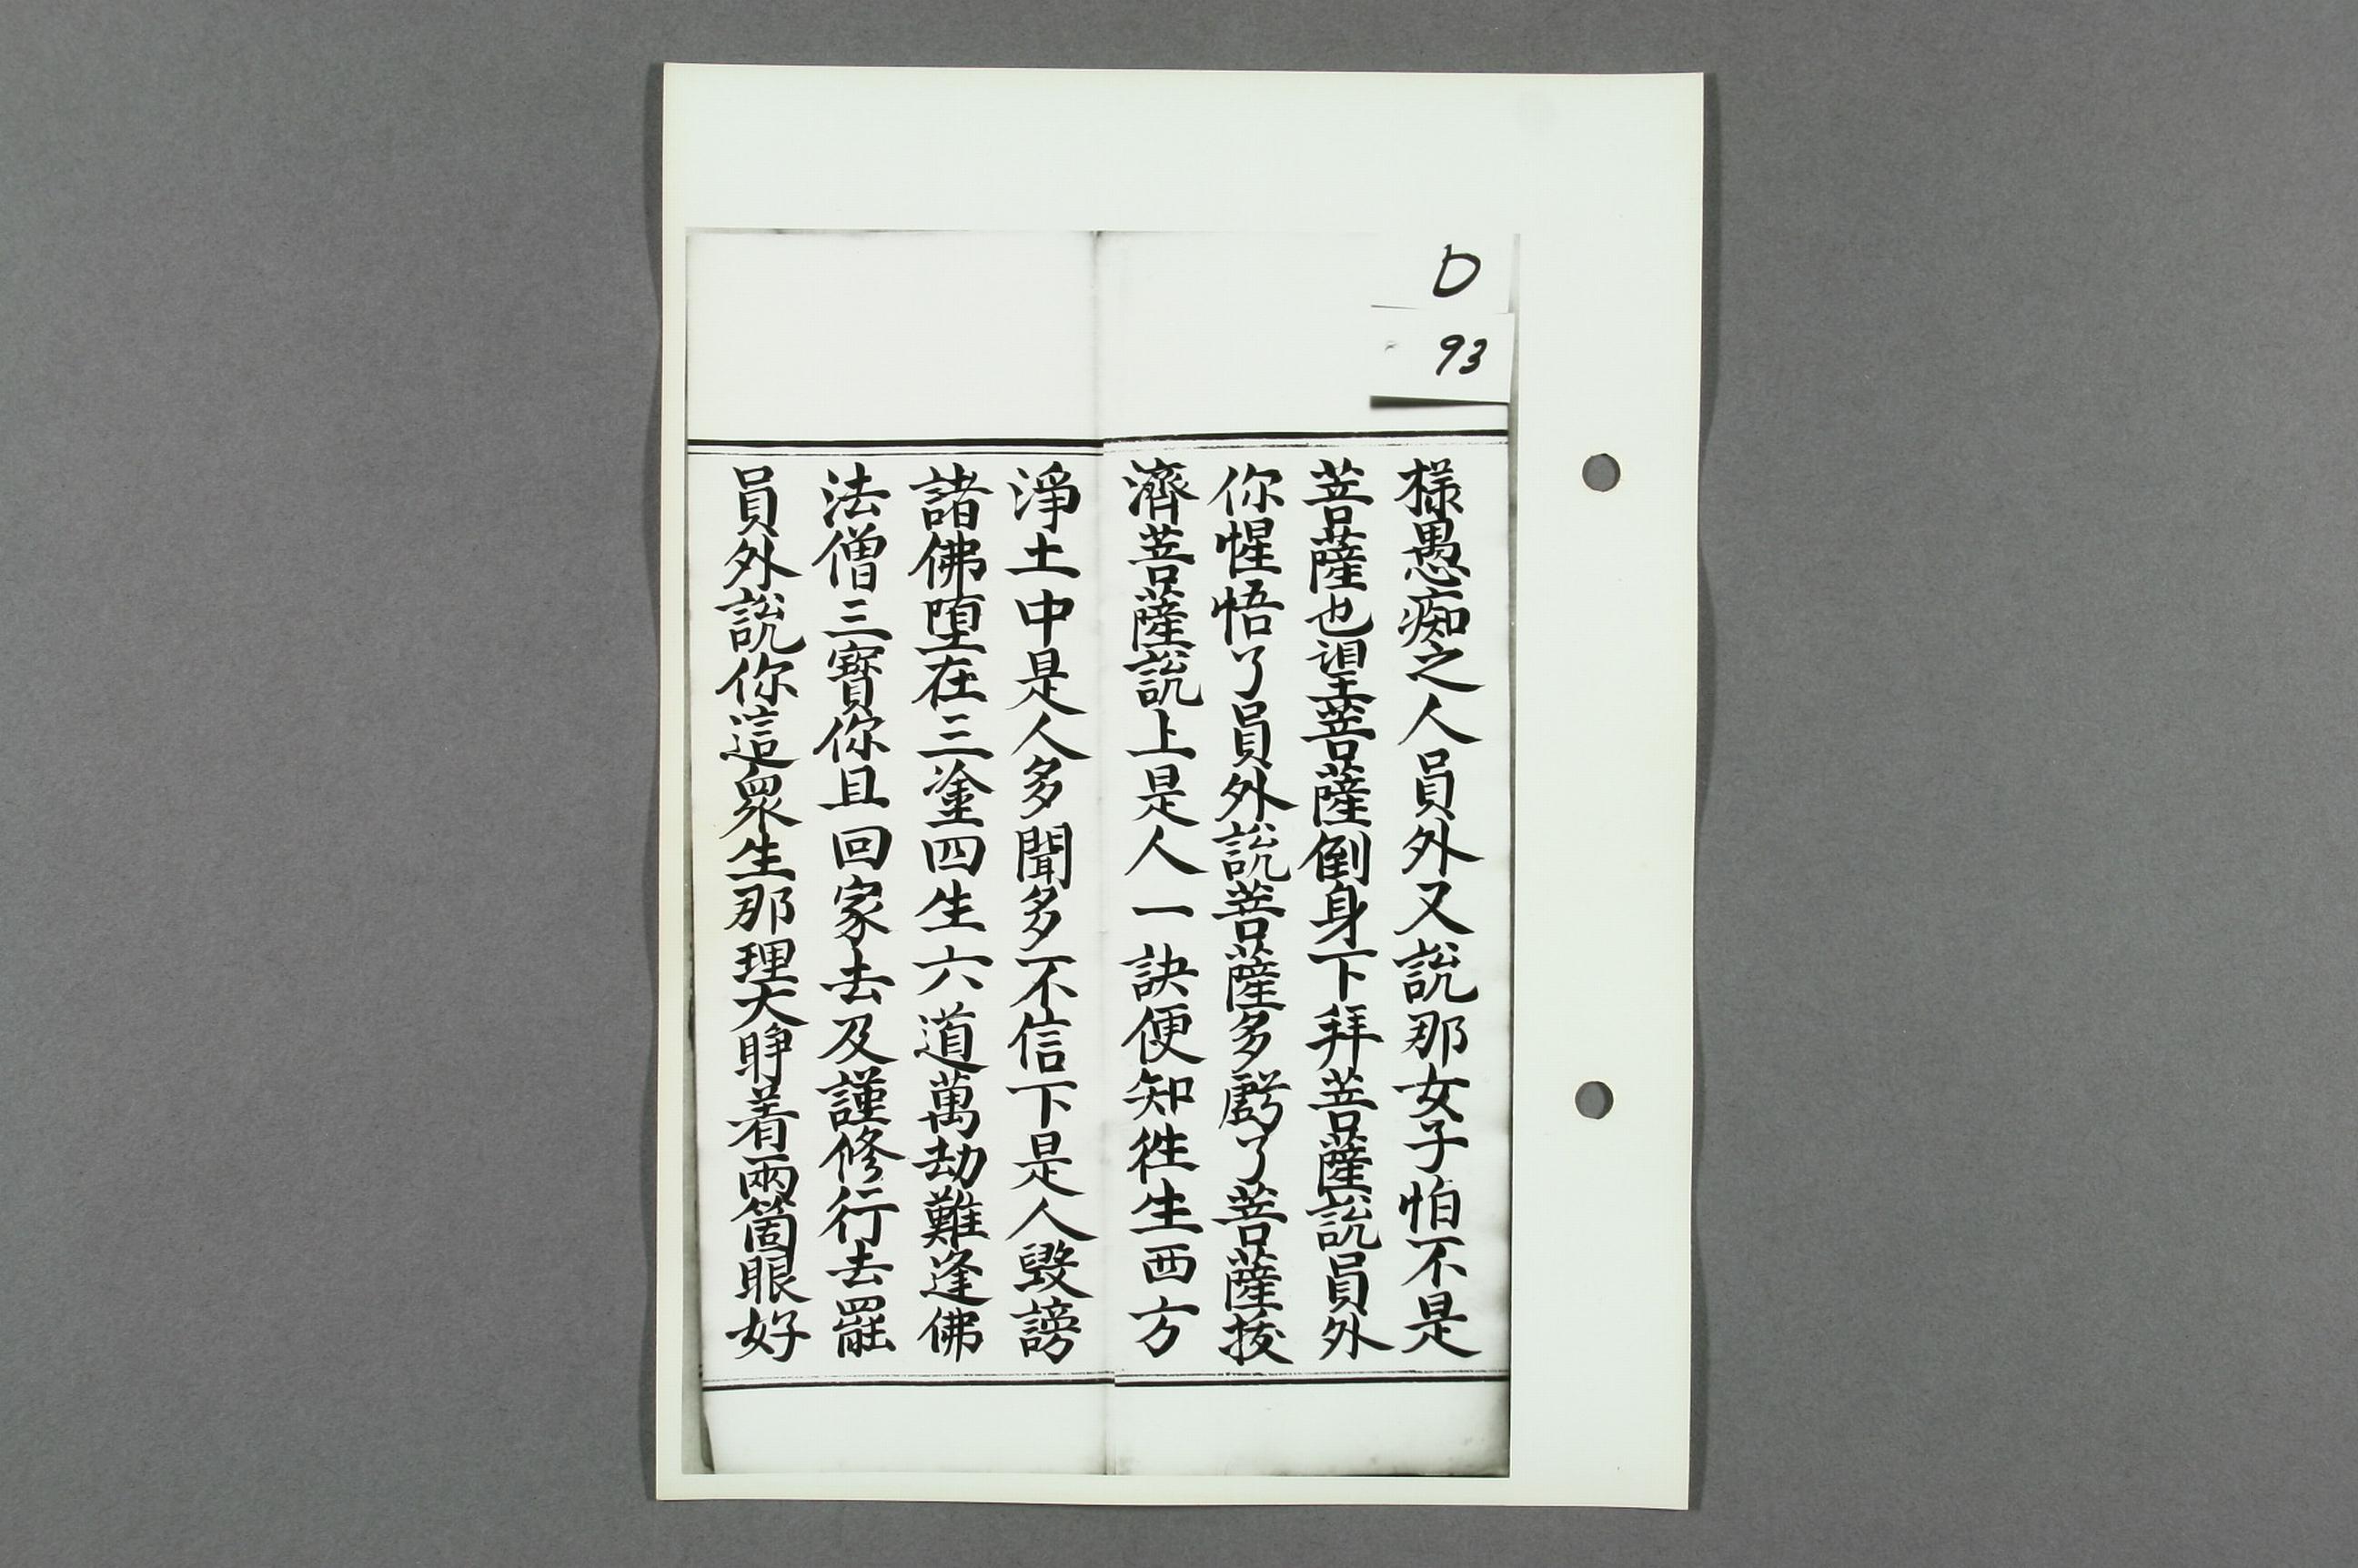 D
93
様愚痴之人員外又說那女子怕不是
菩薩也望菩薩倒身下拜菩薩說員外
你惺悟了員外說菩薩多虧了菩薩拔
濟菩薩說上是人一訣便知徃生西方
淨土中是人多聞多不信下是人毀謗
諸佛堕在三塗四生六道萬劫難逢佛
法僧三寶你且回家去及謹修行去罷
員外說你這衆生那理大睁着兩箇眼好